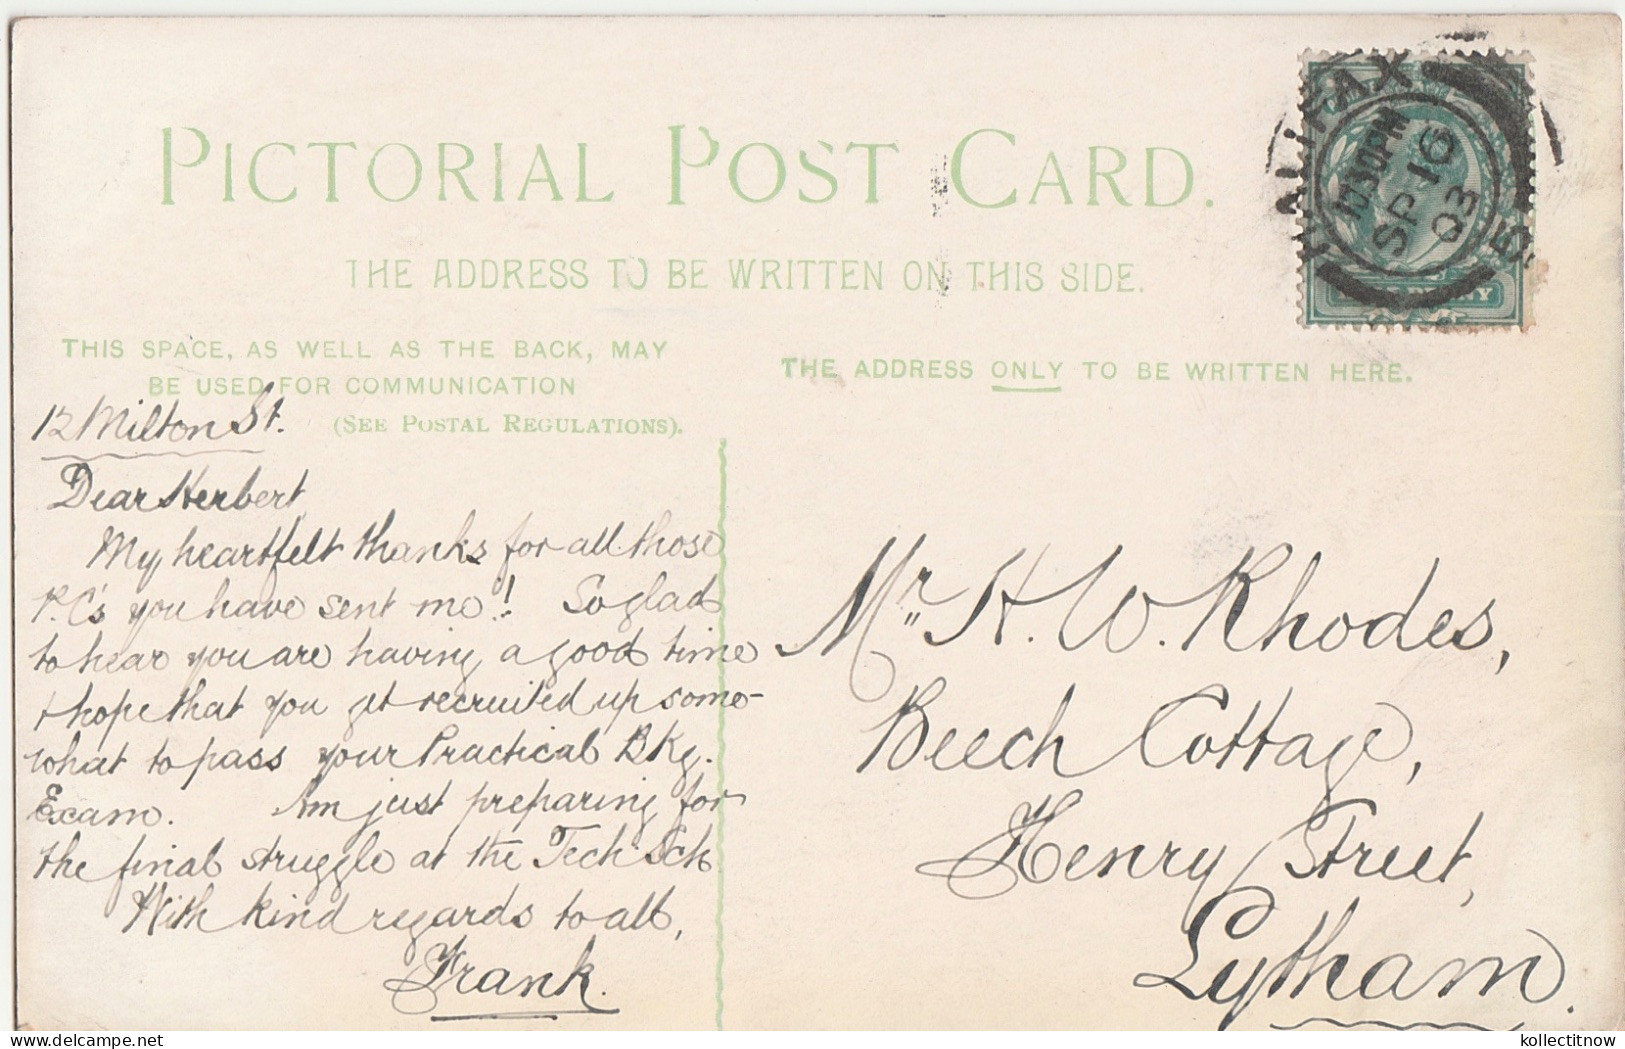 PICTORIAL POST CARD.
THE ADDRESS TO BE WRITTEN ON THIS SIDE.
THIS SPACE, AS WELL AS THE BACK, MAY
BE USED FOR COMMUNICATION
(SEE POSTAL REGULATIONS).
THE ADDRESS ONLY TO BE WRITTEN HERE.
HALIFAX
1030PM
SP 16
03
5
12 Milton St.
Dear Herbert,
My heartfelt thanks for all those
P.C's you have sent me! So glad
to hear you are having a good time
& hope that you get recruited up some-
what to pass your Practical Bkg.
Exam. Am just preparing for
the final struggle at the Tech. Sch.
With kind regards to all,
Frank.
Mr. H. W. Rhodes,
Beech Cottage,
Henry Street,
Lytham.
kollectitnow